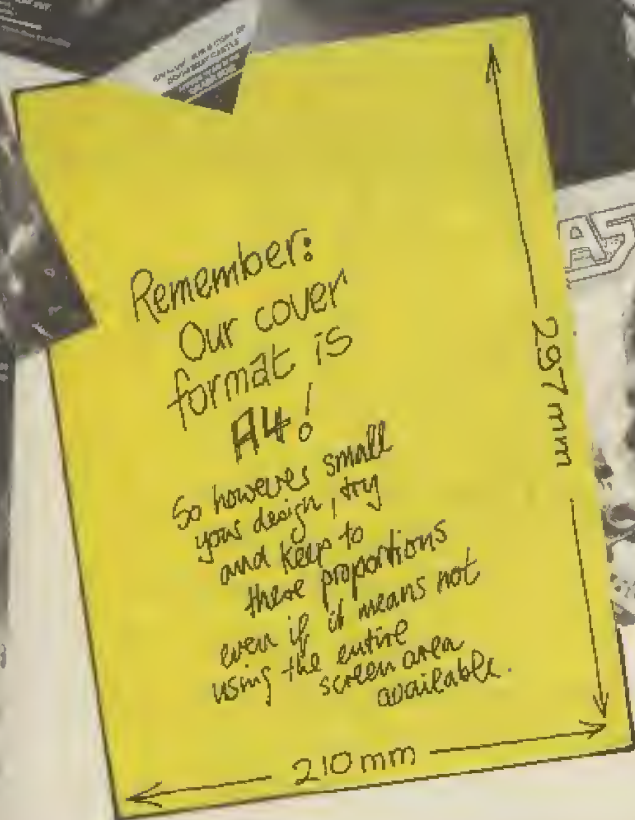 Remember:
Our cover
format is
A4!
So however small
your design, try
and keep to
these proportions
even if it means not
using the entire
screen area
available.
297mm
210mm